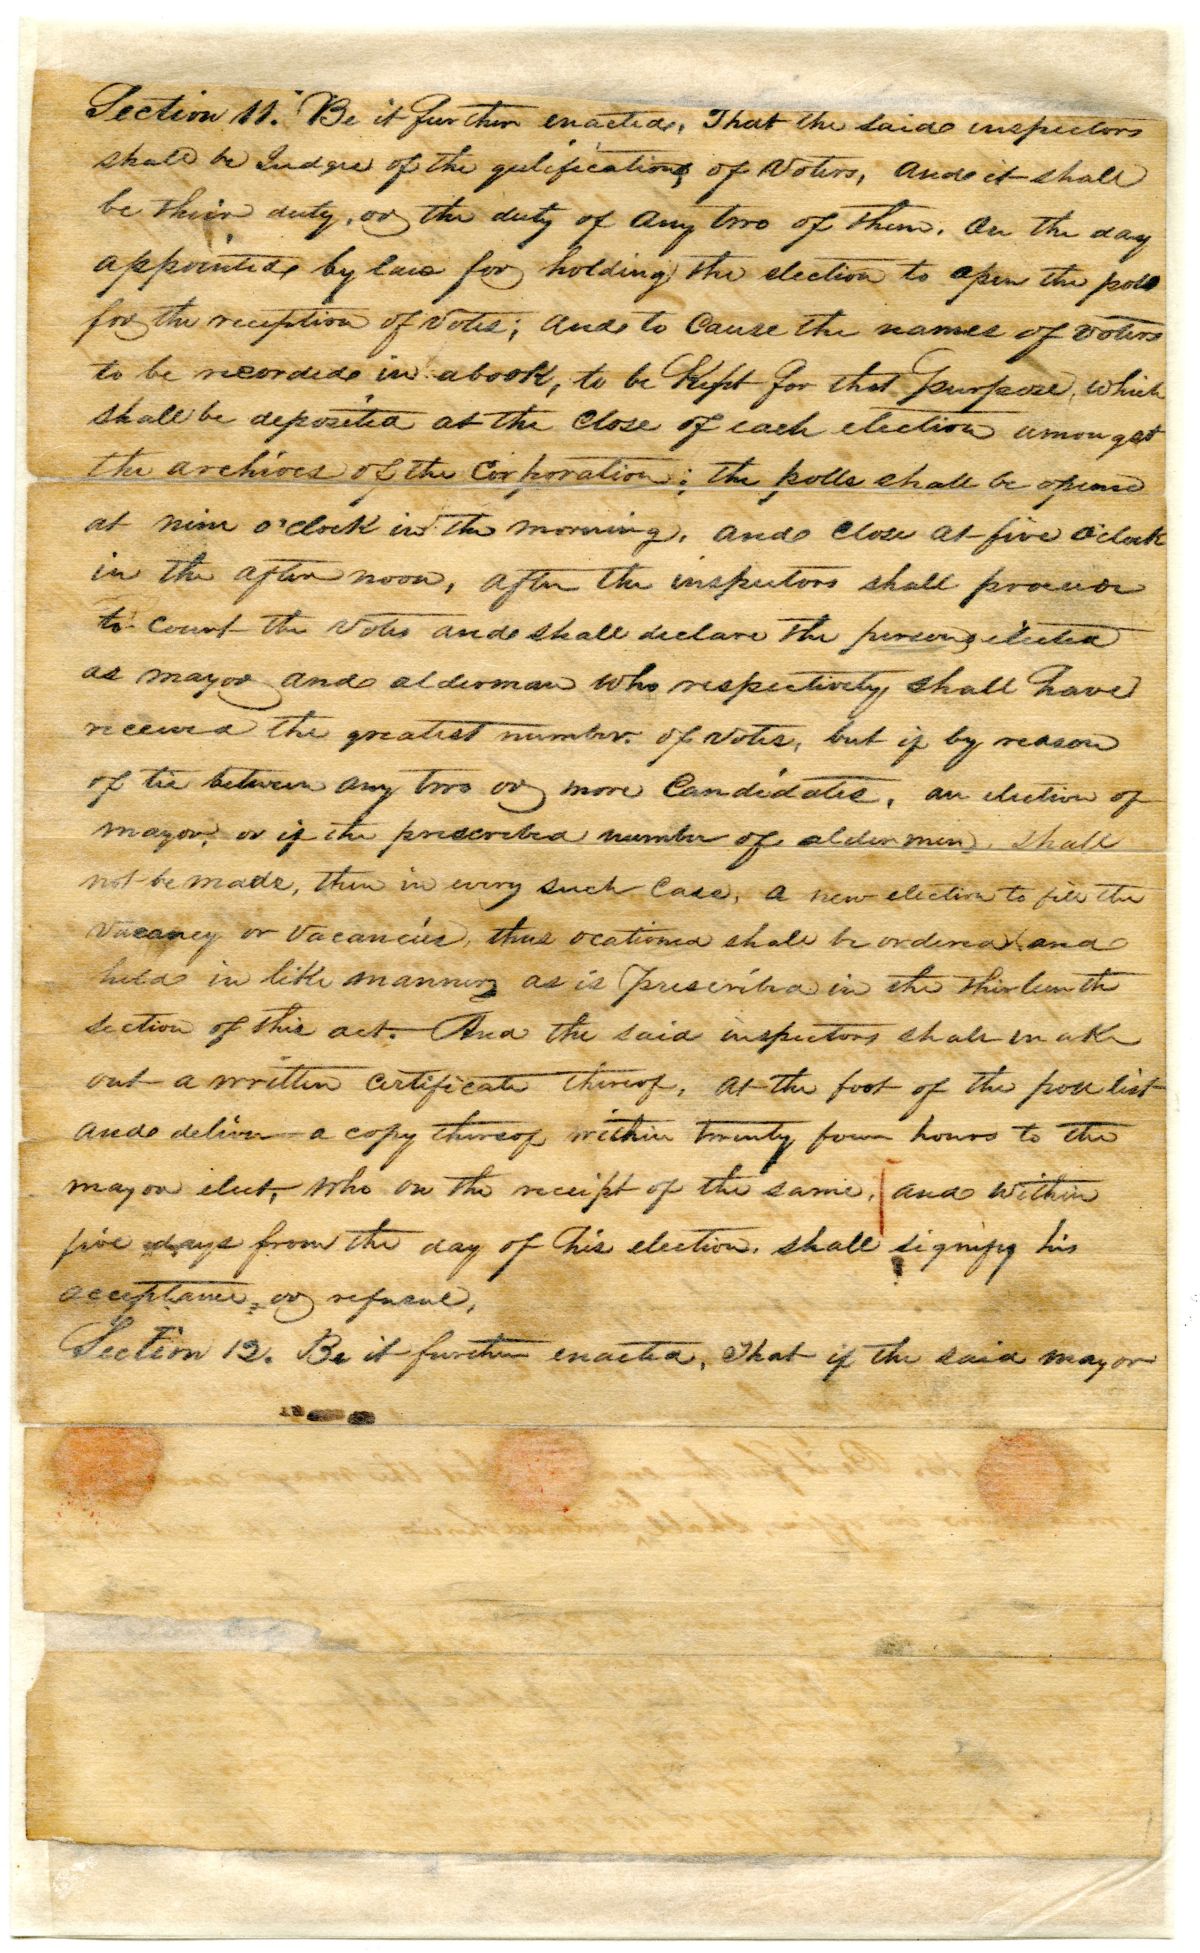 Section 11. Be it further enacted, That the said inspectors
shall be Judges of the qulifications of Voters, And it shall
be their duty, or the duty of any two of them, on the day
appointed by law for holding the election to open the polls
for the reception of Votes; and to Cause the names of voters
to be recorded in a book, to be Kept for that Purpose, which
shall be deposited at the Close of each election amongst
the archives of the Corporation; the polls shall be opened
at nine o'clock in the morning, and Close at five o'clock
in the after noon, after the inspectors shall proceed
to Count the Votes and shall declare the persons elected
as mayor and alderman who respectively shall have
received the greatest number of Votes, but if by reason
of tie between any two or more Candidates, an election of
mayor, or if the prescribed number of aldermen, shall
not be made, then in every such Case, a new election to fill the
Vacancy or Vacancies, thus ocationed shall be ordered and
held in like manner as is Prescribed in the thirteenth
section of this act. And the said inspectors shall make
out a written Certificate thereof, at the foot of the poll list
and deliver a copy thereof within twenty four hours to the
mayor elect, Who on the receipt of the same, and within
five days from the day of his election, shall signify his
acceptance, or refusal,
Section 12. Be it further enacted, That if the said mayor